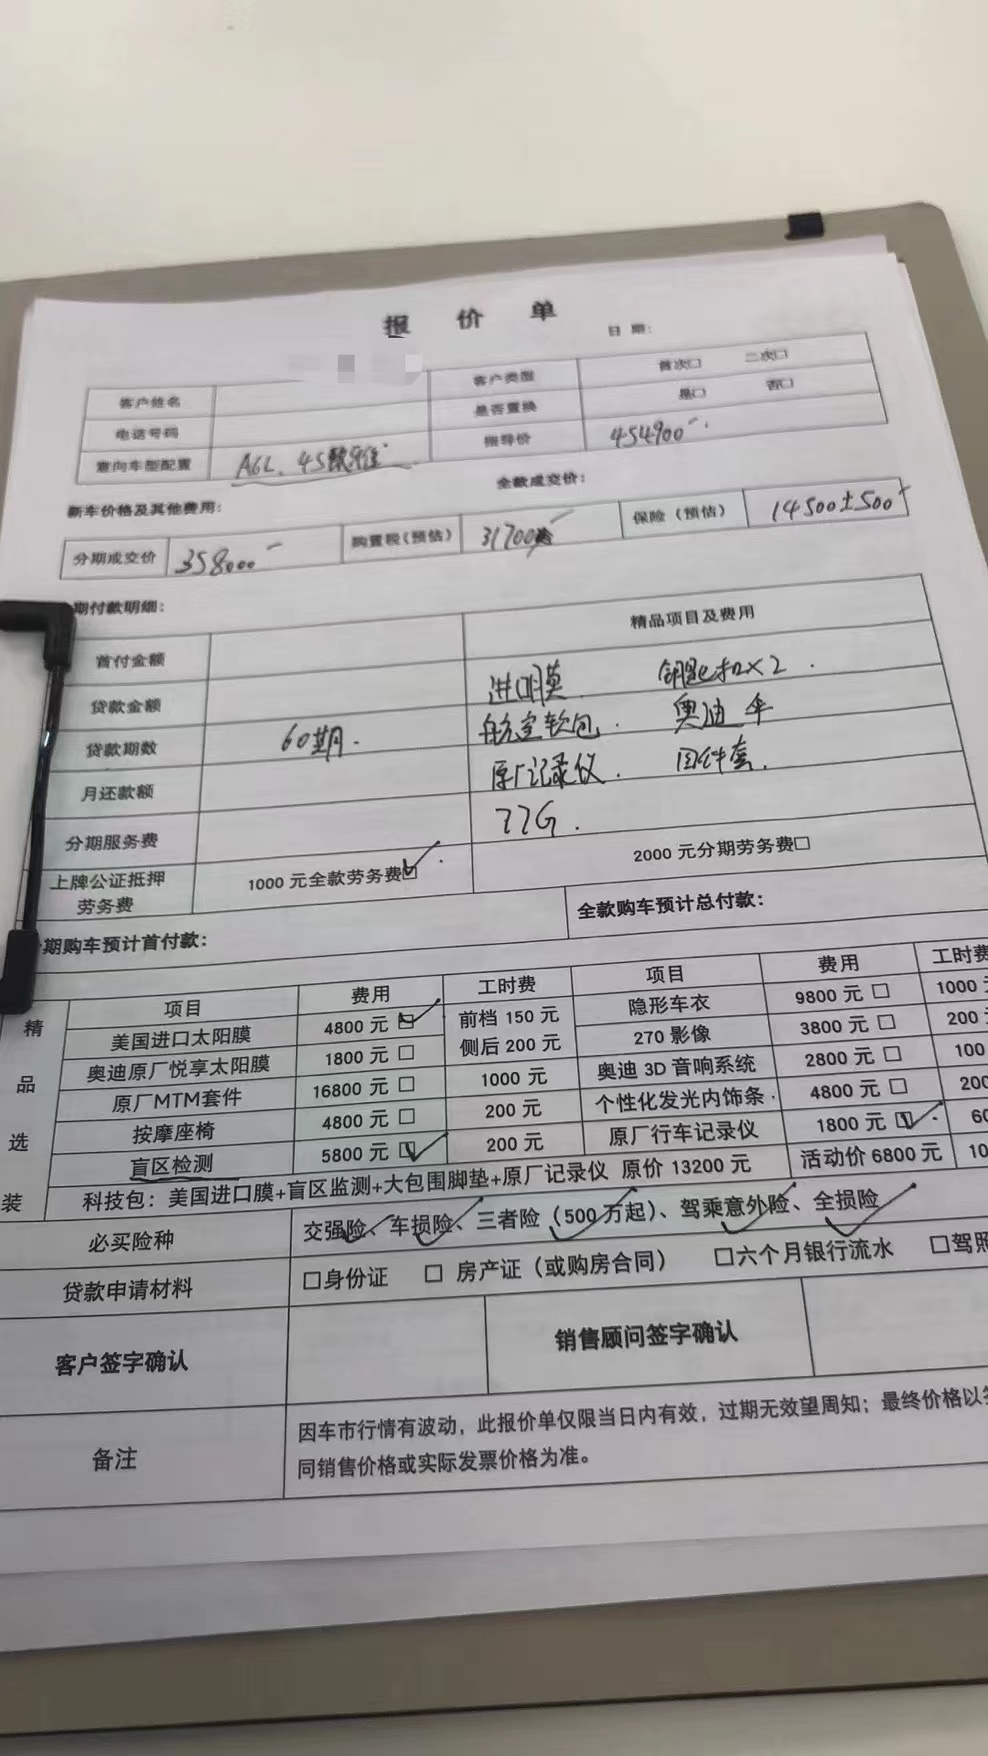 报 价 单
日 期：
客户姓名 客户类型 首次□ 二次□
电话号码 是否置换 是□ 否□
意向车型配置 A6L、45臻选 指导价 454900
新车价格及其他费用： 全款成交价：
分期成交价 358000 购置税(预估) 31700 保险（预估） 14500±500
期付款明细：
首付金额 精品项目及费用
贷款金额 进口膜 钥匙扣×2
贷款期数 60期. 航空软包. 奥迪伞
月还款额 原厂记录仪. 四件套.
分期服务费 77G.
上牌公证抵押劳务费 1000 元全款劳务费☑ 2000 元分期劳务费□
期购车预计首付款： 全款购车预计总付款：
精品选装
项目 费用 工时费 项目 费用 工时费
美国进口太阳膜 4800 元 ☑ 前档 150 元 隐形车衣 9800 元 □ 1000
奥迪原厂悦享太阳膜 1800 元 □ 侧后 200 元 270 影像 3800 元 □ 200
原厂MTM套件 16800 元 □ 1000 元 奥迪 3D 音响系统 2800 元 □ 100
按摩座椅 4800 元 □ 200 元 个性化发光内饰条 4800 元 □ 200
盲区检测 5800 元 ☑ 200 元 原厂行车记录仪 1800 元 ☑
科技包：美国进口膜+盲区监测+大包围脚垫+原厂记录仪 原价 13200 元 活动价 6800 元
必买险种 交强险、车损险、三者险（500 万起）、驾乘意外险、全损险
贷款申请材料 □身份证 □ 房产证（或购房合同） □六个月银行流水 □驾照
客户签字确认 销售顾问签字确认
备注 因车市行情有波动，此报价单仅限当日内有效，过期无效望周知；最终价格以
同销售价格或实际发票价格为准。